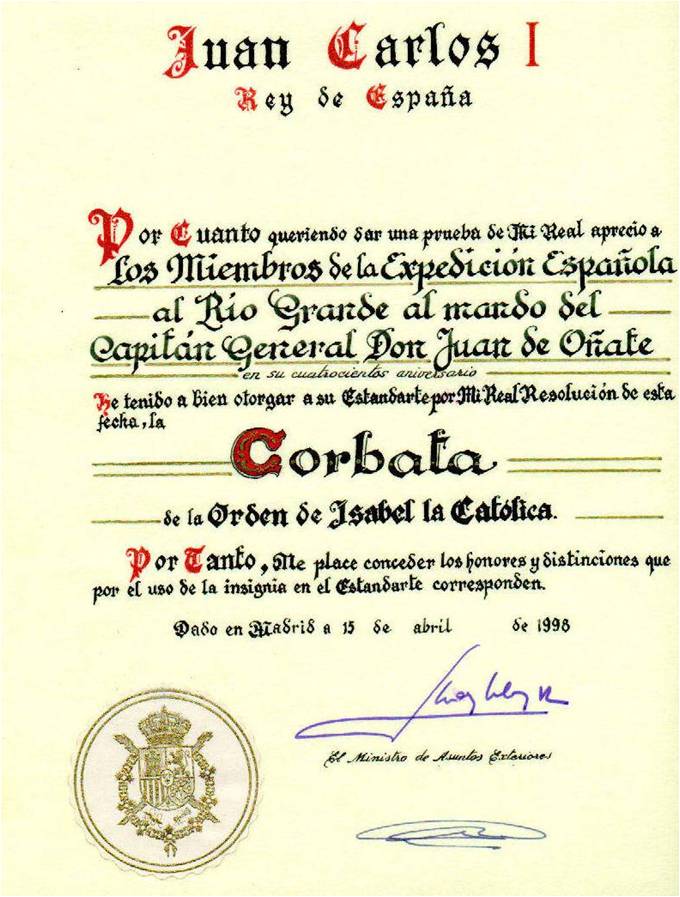 Juan Carlos I
Rey de España
Por Cuanto queriendo dar una prueba de Mi Real aprecio a
Los Miembros de la Expedición Española
al Río Grande al mando del
Capitán General Don Juan de Oñate
en su cuatrocientos aniversario
He tenido a bien otorgar a su Estandarte por Mi Real Resolución de esta
fecha, la
Corbata
de la Orden de Isabel la Católica.
Por Tanto, Me place conceder los honores y distinciones que
por el uso de la insignia en el Estandarte corresponden.
Dado en Madrid a 15 de abril de 1998
El Ministro de Asuntos Exteriores